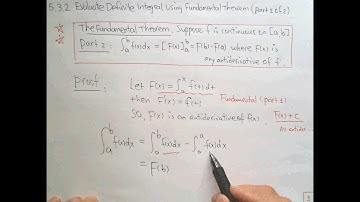 5.3.2 Evaluate Definite Integral Using Fundamental Theorem (part 2 of 2)
The Fundamental Theorem, Suppose f is continuous on [a,b]
Part 2: ∫ₐᵇ f(x)dx = [F(x)]ₐᵇ = F(b) - F(a) where F(x) is
any antiderivative of f.
proof:
Let F(x) = ∫₀ˣ f(t) dt
then F'(x) = f(x) Fundamental (part 1)
So, F(x) is an antiderivative of f(x). F(x) + C
∫ₐᵇ f(x)dx = ∫₀ᵇ f(x)dx - ∫₀ᵃ f(x)dx
= F(b)